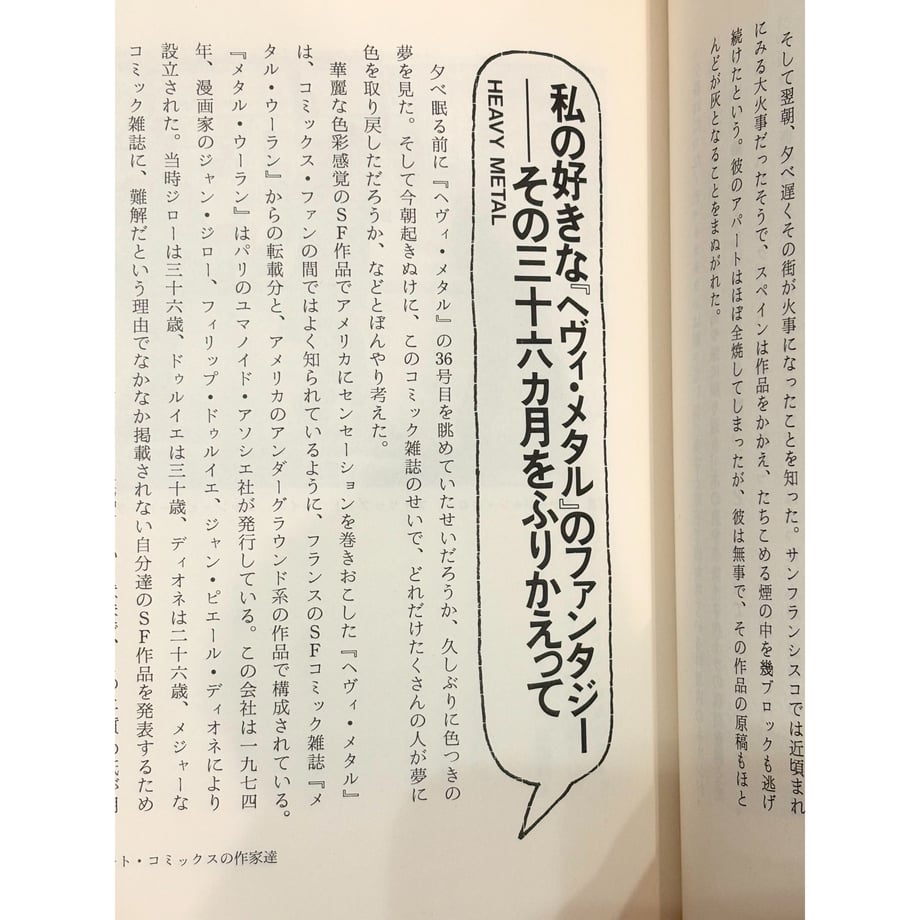 そして翌朝、夕べ遅くその街が火事になったことを知った。サンフランシスコでは近頃まれ
にみる大火事だったそうで、スペインは作品をかかえ、たちこめる煙の中を幾ブロックも逃げ
続けたという。彼のアパートはほぼ全焼してしまったが、彼は無事で、その作品の原稿もほと
んどが灰となることをまぬがれた。
私の好きな『ヘヴィ・メタル』のファンタジー
——その三十六カ月をふりかえって
HEAVY METAL
夕べ眠る前に『ヘヴィ・メタル』の36号目を眺めていたせいだろうか、久しぶりに色つきの
夢を見た。そして今朝起きぬけに、このコミック雑誌のせいで、どれだけたくさんの人が夢に
色を取り戻しただろうか、などとぼんやり考えた。
華麗な色彩感覚のSF作品でアメリカにセンセーションを巻きおこした『ヘヴィ・メタル』
は、コミックス・ファンの間ではよく知られているように、フランスのSFコミック雑誌『メ
タル・ウーラン』からの転載分と、アメリカのアンダーグラウンド系の作品で構成されている。
『メタル・ウーラン』はパリのユマノイド・アソシエ社が発行している。この会社は一九七四
年、漫画家のジャン・ジロー、フィリップ・ドゥルイエ、ジャン・ピエール・ディオネにより
設立された。当時ジローは三十六歳、ドゥルイエは三十歳、ディオネは二十六歳、メジャーな
コミック雑誌に、難解だという理由でなかなか掲載されない自分達のSF作品を発表するため
ート・コミックスの作家達